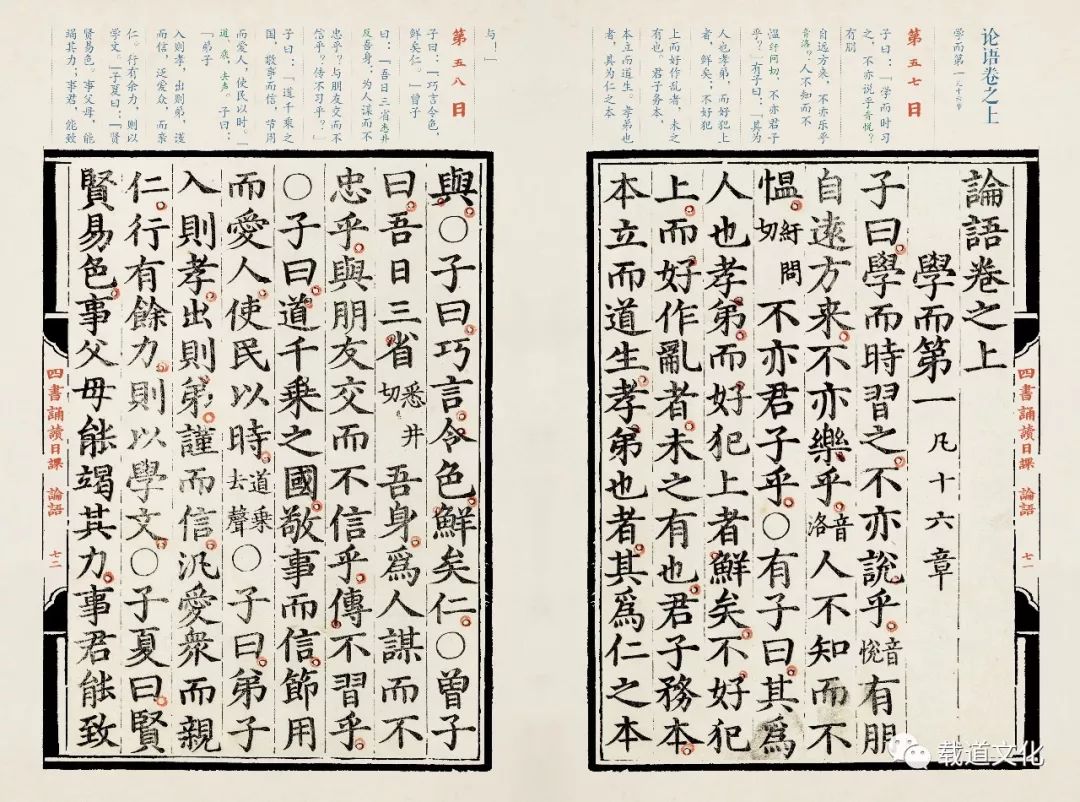 论语卷之上
学而第一凡十六章
第五七日
子曰:「学而时习
之,不亦说乎音悦?
有朋
自远方来,不亦乐乎
音洛?人不知而不
愠纡问切,不亦君子
乎?」有子曰:「其为
人也孝弟,而好犯上
者,鲜矣;不好犯
上而好作乱者,未之
有也。君子务本,
本立而道生。孝弟也
者,其为仁之本
論語卷之上
學而第一凡十六章
子曰學而時習之不亦說乎音悅有朋
自遠方来不亦樂乎音洛人不知而不
慍紆問切不亦君子乎○有子曰其爲
人也孝弟而好犯上者鮮矣不好犯
上而好作亂者未之有也君子務本
本立而道生孝弟也者其爲仁之本
四書誦讀日課 論語 七一
与!」
第五八日
子曰:「巧言令色,
鲜矣仁。」曾子
曰:「吾日三省悉井
反吾身:为人谋而不
忠乎?与朋友交而不
信乎?传不习乎?」
子曰:「道千乘之
国,敬事而信,节用
而爱人,使民以时。」
道、乘,去声。子曰:
「弟子
入则孝,出则弟,谨
而信,泛爱众,而亲
仁。行有余力,则以
学文。」子夏曰:「贤
贤易色。事父母,能
竭其力;事君,能致
與○子曰巧言令色鮮矣仁○曾子
曰吾日三省悉井切吾身爲人謀而不
忠乎與朋友交而不信乎傳不習乎
○子曰道千乘之國敬事而信節用
而愛人使民以時道乘去聲○子曰弟子
入則孝出則弟謹而信汎愛衆而親
仁行有餘力則以學文○子夏曰賢
賢易色事父母能竭其力事君能致
四書誦讀日課 論語 七二
载道文化